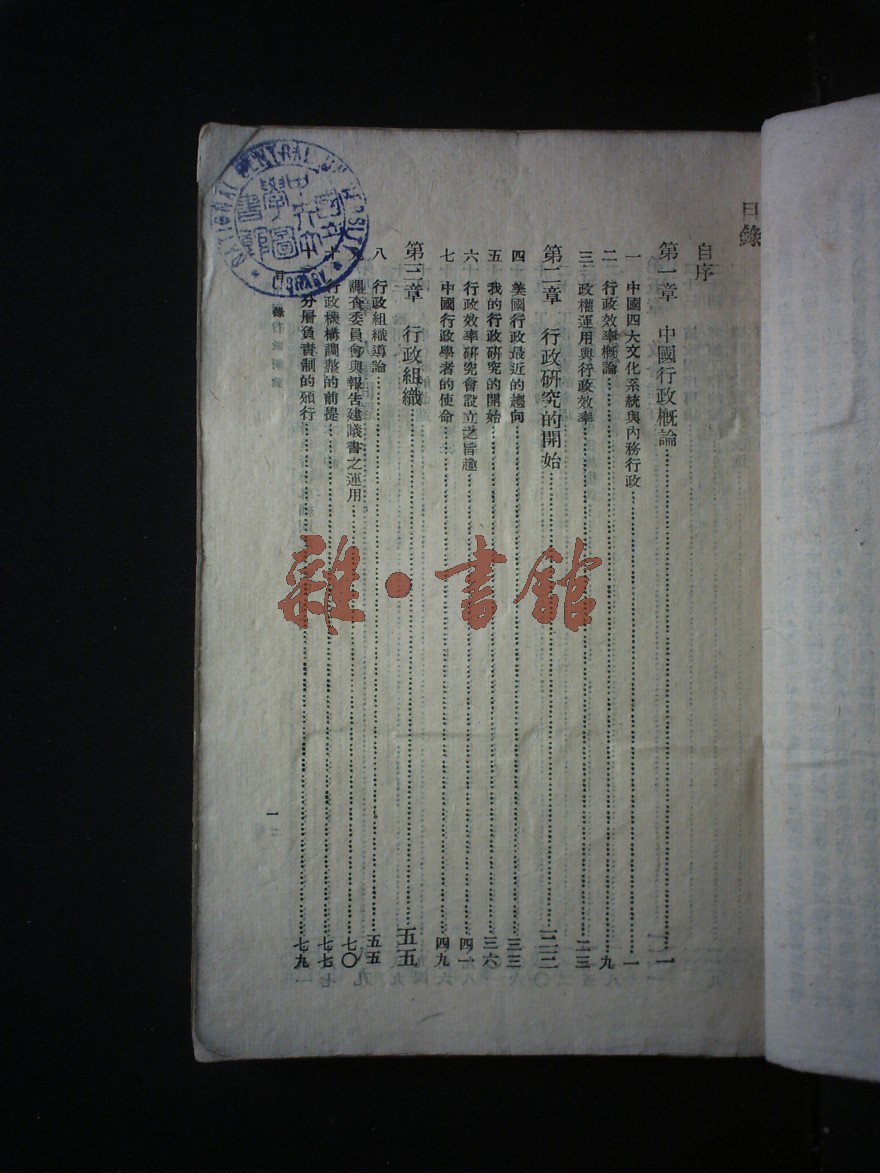 目錄
自序
第一章 中國行政概論……一
一 中國四大文化系統與內務行政……一
二 行政效率概論……九
三 政權運用與行政效率……二三
第二章 行政研究的開始……三三
四 美國行政最近的趨向……三三
五 我的行政研究的開始……三六
六 行政效率研究會設立之旨趣……四一
七 中國行政學者的使命……四九
第三章 行政組織……五五
八 行政組織導論……五五
九 調查委員會與報告建議書之運用……七〇
十 行政機構調整的前提……七七
分層負責制的頒行……七九
目錄
一
NATIONAL CENTRAL UNIVERSITY
LIBRARY
國立中央大學圖書館
雜·書館